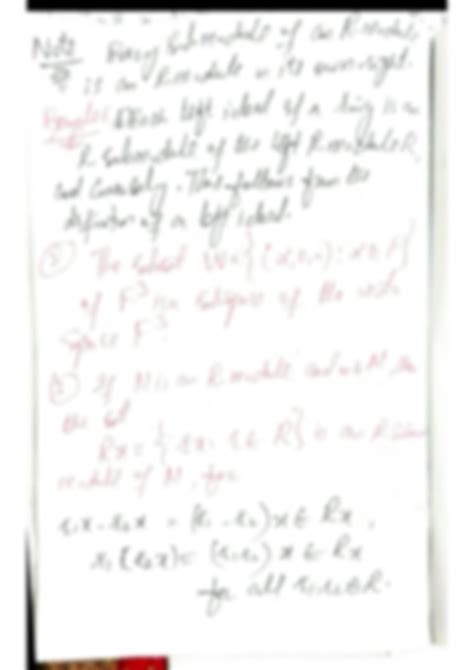 Note Every Submodule of an R module
is an R module in its own right.
Examples Each left ideal of a ring is a
R Submodule of the left R module R,
and Conversely. This follows from the
definition of a left ideal.
② The subset W = {(α,0,0) : α ∈ F}
of F³ is a subspace of the vector
space F³.
If M is an R module and x ∈ M, then
the set
Rx = {rx : r ∈ R} is an R Sub
module of M, for
r₁x - r₂x = (r₁ - r₂)x ∈ Rx,
r₁(r₂x) = (r₁r₂)x ∈ Rx
for all r₁, r₂ ∈ R.